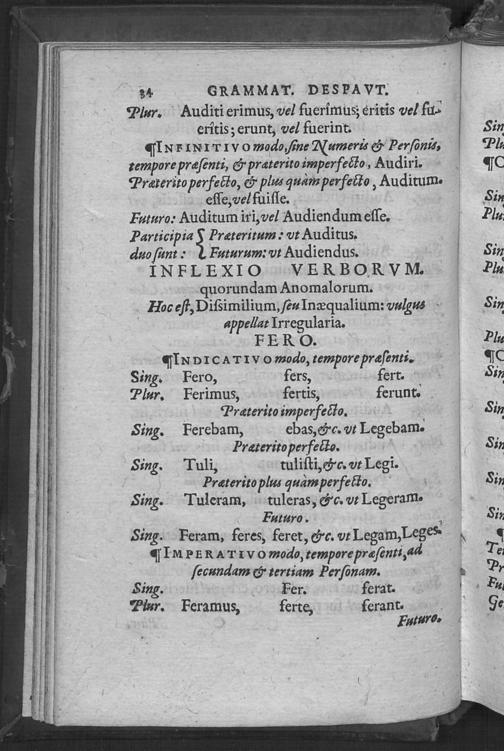 34 GRAMMAT. DESPAVT.
Plur. Auditi erimus, vel fuerimus; eritis vel fu-
eritis; erunt, vel fuerint.
¶INFINITIVO modo, ſine Numeris & Perſonis,
tempore præſenti, & præterito imperfecto, Audiri.
Præterito perfecto, & plus quàm perfecto, Auditum
eſſe, vel fuiſſe.
Futuro: Auditum iri, vel Audiendum eſſe.
Participia { Præteritum: vt Auditus.
duo ſunt: { Futurum: vt Audiendus.
INFLEXIO VERBORVM.
quorundam Anomalorum.
Hoc eſt, Diſsimilium, ſeu Inæqualium: vulgus
appellat Irregularia.
FERO.
¶INDICATIVO modo, tempore præſenti.
Sing. Fero, fers, fert.
Plur. Ferimus, fertis, ferunt.
Præterito imperfecto.
Sing. Ferebam, ebas, &c. vt Legebam.
Præterito perfecto.
Sing. Tuli, tuliſti, &c. vt Legi.
Præterito plus quàm perfecto.
Sing. Tuleram, tuleras, &c. vt Legeram.
Futuro.
Sing. Feram, feres, feret, &c. vt Legam, Leges.
¶IMPERATIVO modo, tempore præſenti, ad
ſecundam & tertiam Perſonam.
Sing. Fer. ferat.
Plur. Feramus, ferte, ferant.
Futuro.
Sin
Plu
¶C
Sin
Plu
Sin
Plu
Sin
Plu
¶C
Sin
Sin
Sin
Sin
Sin
¶
Te
Pr
Fu
Ge